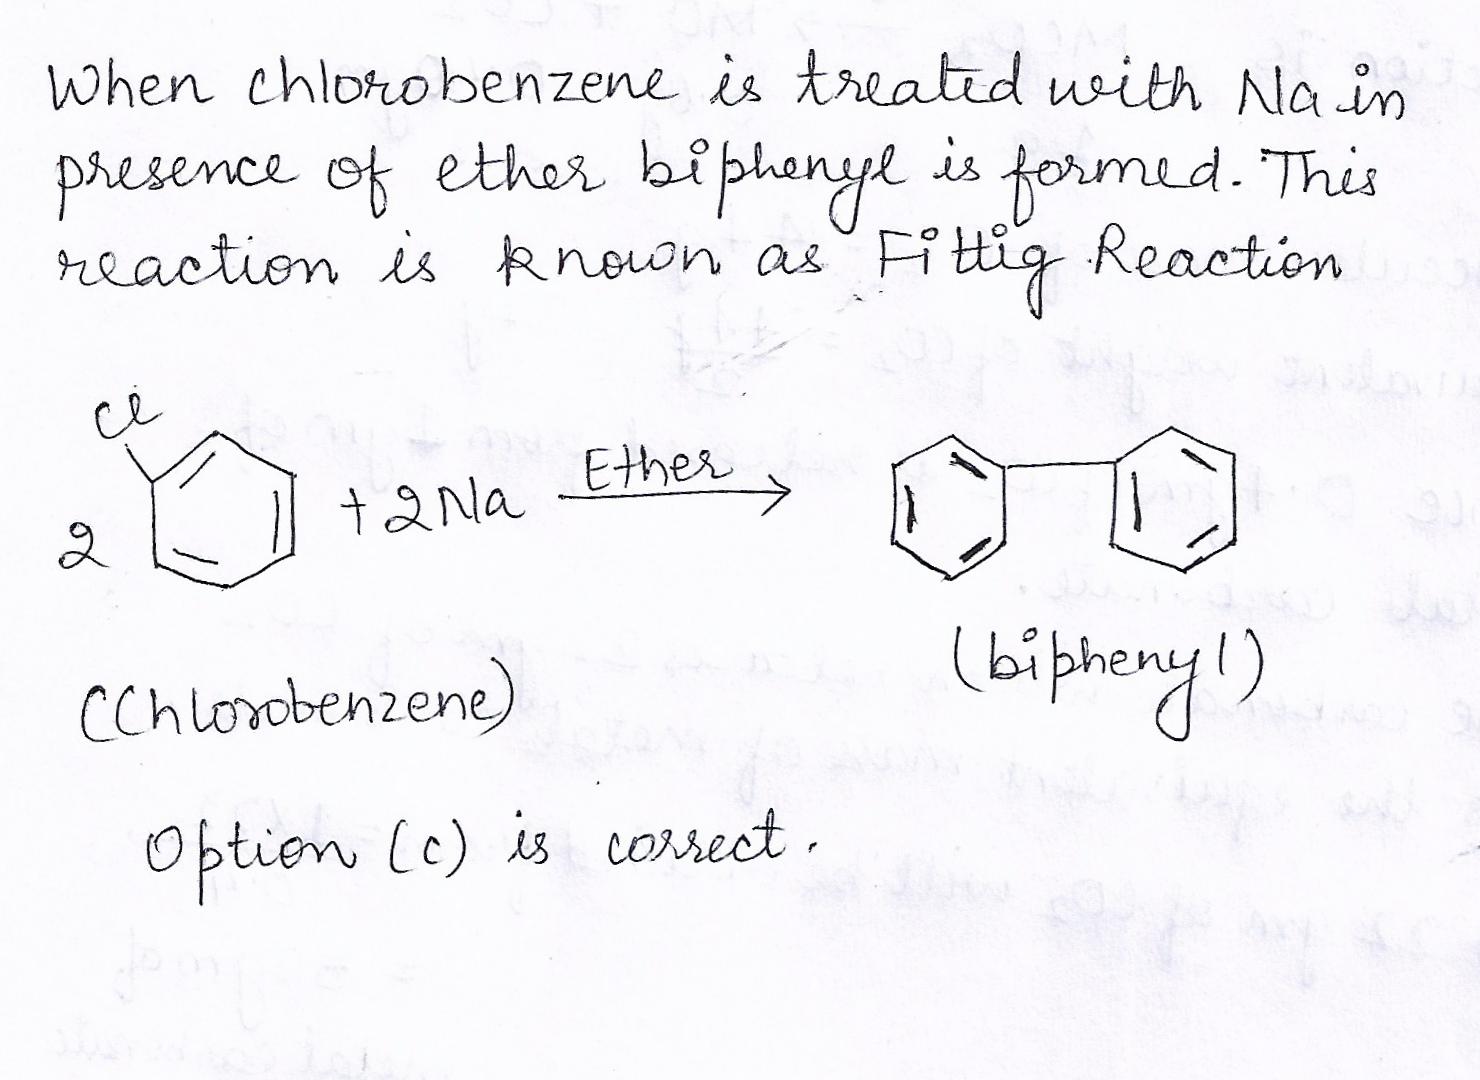 When chlorobenzene is treated with Na in
presence of ether biphenyl is formed. This
reaction is known as Fittig Reaction
Cl
2 + 2Na Ether
(Chlorobenzene)
(biphenyl)
Option (c) is correct.